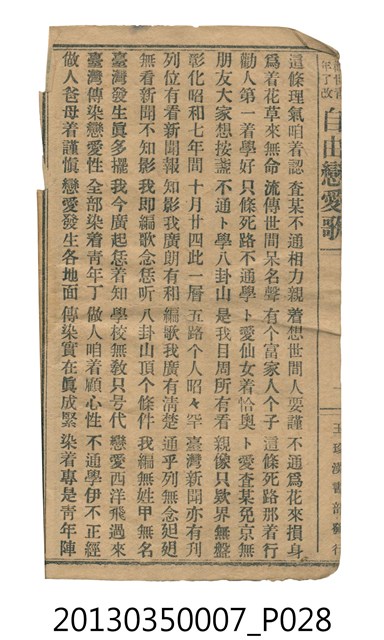 自由戀愛歌
這條理氣咱着認 査某不通相力親 着想世間人要謹 不通爲花來損身
爲着花草來無命 流傳世間呆名聲 有个富家人个子 這條死路那着行
勸人第一着學好 只條死路不通學 卜愛仙女着恰奧 卜愛査某免京無
朋友大家想按盞 不通卜學八卦山 是我目周所有看 親像只欵界無盤
彰化昭和七年間 十月廿四此一層 五路个人昭々罕 臺灣新聞亦有刊
列位有看新聞報 知影我廣朗有和 編歌我廣有淸楚 通乎列無念廷廷
無看新聞不知影 我即編歌念恁听 八卦山頂个條件 我編無姓甲無名
臺灣發生眞多擺 我今廣起恁着知 學校無敎只号代 戀愛西洋飛過來
臺灣傳染戀愛性 全部染着靑年丁 做人咱着顧心性 不通學伊不正經
做人爸母着謹愼 戀愛發生各地面 傳染實在眞成緊 染着專是靑年陣
20130350007_P028